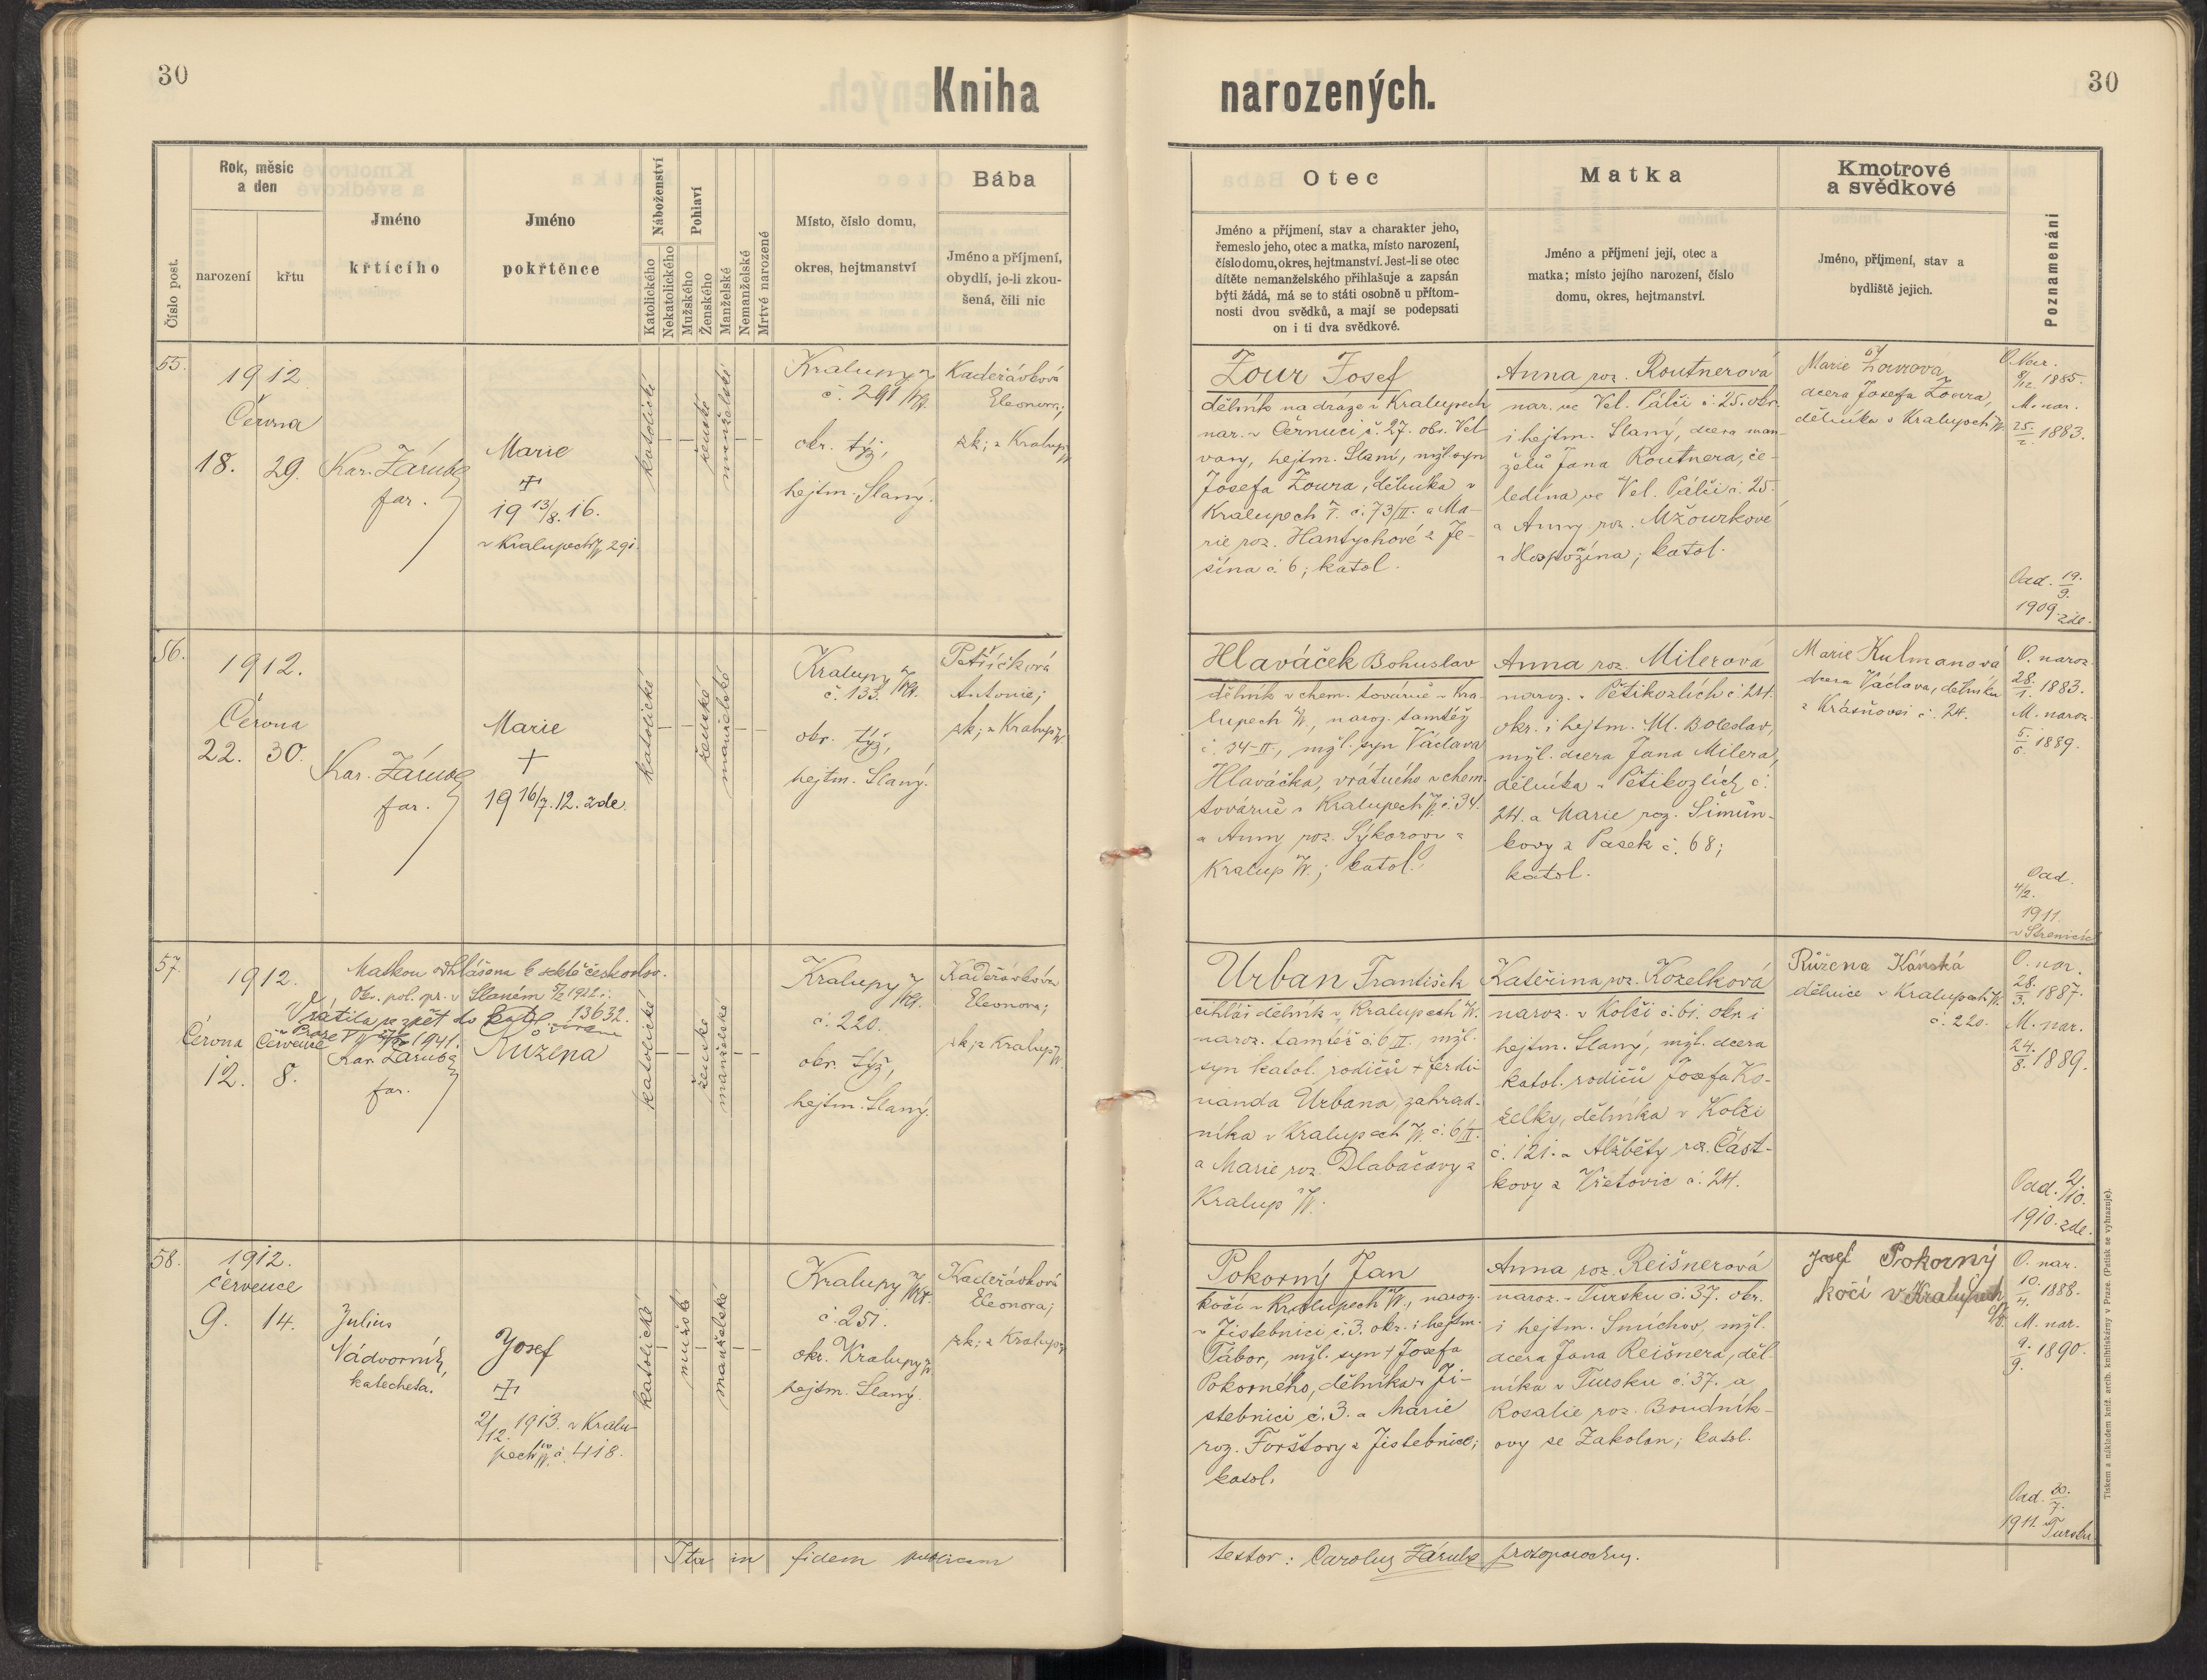 30
Kniha
narozených.
30
Číslo post.
Rok, měsíc
a den
narození
křtu
Jméno
křtícího
Jméno
pokřtěnce
Náboženství
Katolického
Nekatolického
Pohlaví
Mužského
Ženského
Manželské
Nemanželské
Mrtvé narozené
Místo, číslo domu,
okres, hejtmanství
Bába
Jméno a příjmení,
obydlí, je-li zkou-
šená, čili nic
Otec
Jméno a příjmení, stav a charakter jeho,
řemeslo jeho, otec a matka, místo narození,
číslo domu, okres, hejtmanství. Jest-li se otec
dítěte nemanželského přihlašuje a zapsán
býti žádá, má se to státi osobně u přítom-
nosti dvou svědků, a mají se podepsati
on i ti dva svědkové.
Matka
Jméno a příjmení její, otec a
matka; místo jejího narození, číslo
domu, okres, hejtmanství.
Kmotrové
a svědkové
Jméno, příjmení, stav a
bydliště jejich.
Poznamenání
55.
1912
Června
18. 29.
Kar. Záruba
far.
Marie
19 13/8. 16.
v Kralupech 291.
katolické
ženské
manželské
Kralupy
č. 291
okr. týž,
hejtm. Slaný.
Kadeřávková
Eleonora;
zk; z Kralup
Zour Josef
dělník na dráze v Kralupech
nar. v Černuci č. 27. okr. Vel-
vary, hejtm. Slaný, mžl. syn
Josefa Zoura, dělníka v
Kralupech č. 73/II. a Ma-
rie roz. Hantychové z Je-
šína č. 6; katol.
Anna roz. Routnerová
nar. ve Vel. Pálči č. 25. okr.
i hejtm. Slaný, dcera man-
želů Jana Routnera, če-
ledína ve Vel. Pálči č. 25.
a Anny roz. Mžourkové
z Hospozína; katol.
Marie Zourova,
dcera Josefa Zoura,
dělníka v Kralupech
O. Nar.
8/12. 1885.
M. nar.
25./2. 1883.
Odd. 19./9.
1909. zde.
56.
1912.
Června
22. 30.
Kar. Záruba
far.
Marie
+
19 16/7. 12. zde.
katolické
ženské
manželské
Kralupy
č. 133.
okr. týž,
hejtm. Slaný.
Petříčková
Antonie;
zk; z Kralup
Hlaváček Bohuslav
dělník v chem. továrně v Kra-
lupech, naroz. tamtéž
č. 34-II, mžl. syn Václava
Hlaváčka, vrátného v chem.
továrně v Kralupech č. 34.
a Anny roz. Sýkorovy z
Kralup; katol.
Anna roz. Milerová
naroz. v Pětikozlích č. 24.
okr. i hejtm. Ml. Boleslav,
mžl. dcera Jana Milera,
dělníka v Pětikozlích č.
24. a Marie roz. Šimůn-
kovy z Pasek č. 68;
katol.
Marie Kulmanová
dcera Václava, dělníka
z Krásňovsi č. 24.
O. naroz.
28./1. 1883.
M. naroz.
1889.
Odd.
4/2.
1911.
57.
1912.
Června Července
12. 8.
Matkou odhlášena k sektě českoslov.
Okr. pol. spr. v Slaném 1922 č.
13632.
Vrátila se zpět do kat.
1941.
Kar. Záruba
far.
Růžena
katolické
ženské
manželské
Kralupy
č. 220.
okr. týž,
hejtm. Slaný.
Kadeřávková
Eleonora;
zk; z Kralup
Urban František
cihlář. dělník v Kralupech
naroz. tamtéž č. 6 II., mžl.
syn katol. rodičů + Ferdi-
nanda Urbana, zahrad-
níka v Kralupech č. 6 II.
a Marie roz. Dlabačovy z
Kralup
Kateřina roz. Kozelková
naroz. v Kolči č. 61. okr. i
hejtm. Slaný, mžl. dcera
katol. rodičů Josefa Ko-
zelky, dělníka v Kolči
č. 121. a Alžběty roz. Část-
kovy z Křetovic č. 24.
Růžena Kánská
dělnice v Kralupech
č. 220.
O. nar.
28./3. 1887.
M. nar.
24./8. 1889.
Odd. 2/10.
1910. zde.
58.
1912.
července
9. 14.
Julius
Nádvorník,
katecheta.
Josef
2/12. 1913. v Kralu-
pech č. 418.
katolické
mužské
manželské
Kralupy
č. 251.
okr. Kralupy
hejtm. Slaný.
Kadeřávková
Eleonora;
zk; z Kralup
Pokorný Jan
kočí v Kralupech, naroz.
v Jistebnici č. 3. okr. i hejtm.
Tábor, mžl. syn + Josefa
Pokorného, dělníka v Ji-
stebnici č. 3. a Marie
roz. Forštovy z Jistebnice;
katol.
Anna roz. Reišnerová
naroz. v Tursku č. 37. okr.
i hejtm. Smíchov, mžl.
dcera Jana Reišnera, děl-
níka v Tursku č. 37. a
Rosalie roz. Boudník-
ovy se Zakolan; katol.
Josef Pokorný
kočí v Kralupech
O. nar.
10./4. 1888.
M. nar.
9./9. 1890.
Odd. 30./7.
1911. v Tursku.
Ita in fidem publicam
testor: Carolus Záruba protoparochus.
Tiskem a nákladem kníž. arcib. knihtiskárny v Praze. (Patisk se vyhrazuje).